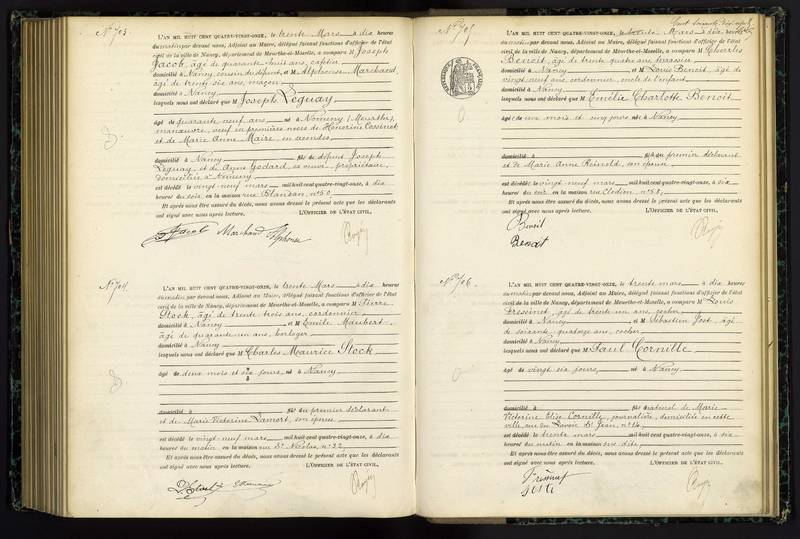 N° 703.
L'AN MIL HUIT CENT QUATRE-VINGT-ONZE, le trente Mars à dix heures
du matin par devant nous, Adjoint au Maire, délégué faisant fonctions d'officier de l'état
civil de la ville de Nancy, département de Meurthe-et-Moselle, a comparu M Joseph
Jacob, âgé de quarante huit ans,
domicilié à Nancy, cousin du défunt, et M Alphonse Marchand,
âgé de trente six ans, maçon,
domicilié à Nancy
lesquels nous ont déclaré que M Joseph Leguay,
âgé de quarante neuf ans né à Nomeny (Meurthe),
manœuvre, veuf en premières noces de Honorine Cossinet
et de Marie Anne Maire, en secondes
domicilié à Nancy fils de défunt Joseph
Leguay, et de Anne Godard, sa veuve, propriétaire,
domiciliée à Nomeny
est décédé le vingt-neuf mars mil huit cent quatre-vingt-onze, à dix
heures du soir, en la maison rue Blandan, n° 50
Et après nous être assuré du décès, nous avons dressé le présent acte que les déclarants
ont signé avec nous après lecture. L'OFFICIER DE L'ÉTAT CIVIL,
Jacob Marchand Alphonse
N° 704.
L'AN MIL HUIT CENT QUATRE-VINGT-ONZE, le trente Mars à dix heures
du matin par devant nous, Adjoint au Maire, délégué faisant fonctions d'officier de l'état
civil de la ville de Nancy, département de Meurthe-et-Moselle, a comparu M Pierre
Stock, âgé de trente trois ans, cordonnier,
domicilié à Nancy et M Emile Maubert,
âgé de quarante un ans, horloger
domicilié à Nancy
lesquels nous ont déclaré que M Charles Maurice Stock
âgé de deux mois et six jours, né à Nancy
domicilié à fils du premier déclarant
et de Marie Victorine Lamort, son épouse
est décédé le vingt-neuf mars mil huit cent quatre-vingt-onze, à dix
heures du matin en la maison rue St Nicolas, n° 32
Et après nous être assuré du décès, nous avons dressé le présent acte que les déclarants
ont signé avec nous après lecture. L'OFFICIER DE L'ÉTAT CIVIL,
N° 705
L'AN MIL HUIT CENT QUATRE-VINGT-ONZE, le trente Mars à dix heures
du matin par devant nous, Adjoint au Maire, délégué faisant fonctions d'officier de l'état
civil de la ville de Nancy, département de Meurthe-et-Moselle, a comparu M Charles
Benoit, âgé de trente quatre ans, terrassier
domicilié à Nancy et M Louis Benoit, âgé de
vingt neuf ans, cordonnier, oncle de l'enfant
domicilié à Nancy
lesquels nous ont déclaré que M Emélie Charlotte Benoit
âgée un mois et cinq jours née à Nancy
domicilié à fille du premier déclarant
et de Marie Anne Reinold, son épouse
est décédée le vingt-neuf mars mil huit cent quatre-vingt-onze, à dix
heures du soir en la maison rue Clodion, n° 58,
Et après nous être assuré du décès, nous avons dressé le présent acte que les déclarants
ont signé avec nous après lecture. L'OFFICIER DE L'ÉTAT CIVIL,
Benoit
Benoit
N° 706.
L'AN MIL HUIT CENT QUATRE-VINGT-ONZE, le trente mars à dix heures
du matin par devant nous, Adjoint au Maire, délégué faisant fonctions d'officier de l'état
civil de la ville de Nancy, département de Meurthe-et-Moselle, a comparu M Louis
âgé de trente un ans, cocher
domicilié à Nancy et M Sébastien Jost, âgé
de soixante quatorze ans, cocher
domicilié à Nancy
lesquels nous ont déclaré que M Paul Cornille
âgé de vingt six jours, né à Nancy,
domicilié à fils naturel de Marie
Victorine Elise Cornille, journalière, domiciliée en cette
ville, rue du Savoir St Jean, n° 14,
est décédé le trente mars mil huit cent quatre-vingt-onze, à dix
heures du matin en la maison sus dite
Et après nous être assuré du décès, nous avons dressé le présent acte que les déclarants
ont signé avec nous après lecture. L'OFFICIER DE L'ÉTAT CIVIL,